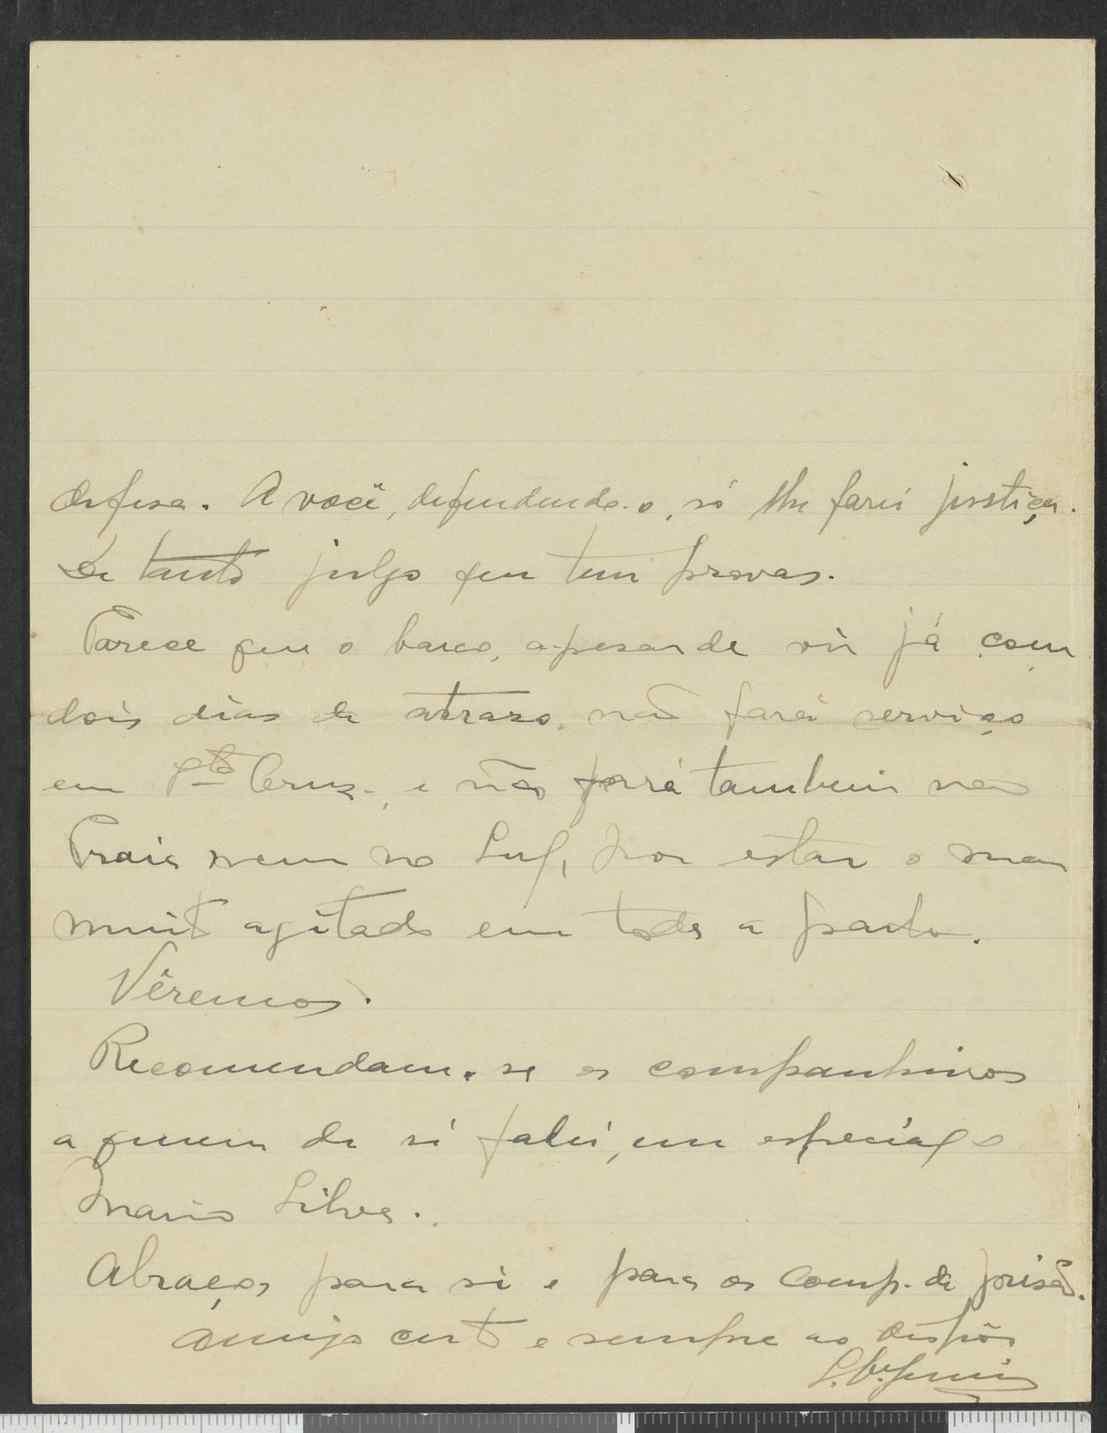 defesa. A você, defendendo-o, só lhe farei justiça.
De tanto julgo que tem provas.
Parece que o barco, apesar de vir já com
dois dias de atrazo, não fará serviço
em Sta Cruz, e não fará tambem na
Praia nem no Sul, por estar o mar
muito agitado em toda a parte.
Vêremos.
Recomendam-se os companheiros
a quem de si falei, em especial o
Mario Silva.
Abraços para si e para os comp. de prisão.
Amigo certo e sempre ao dispôr